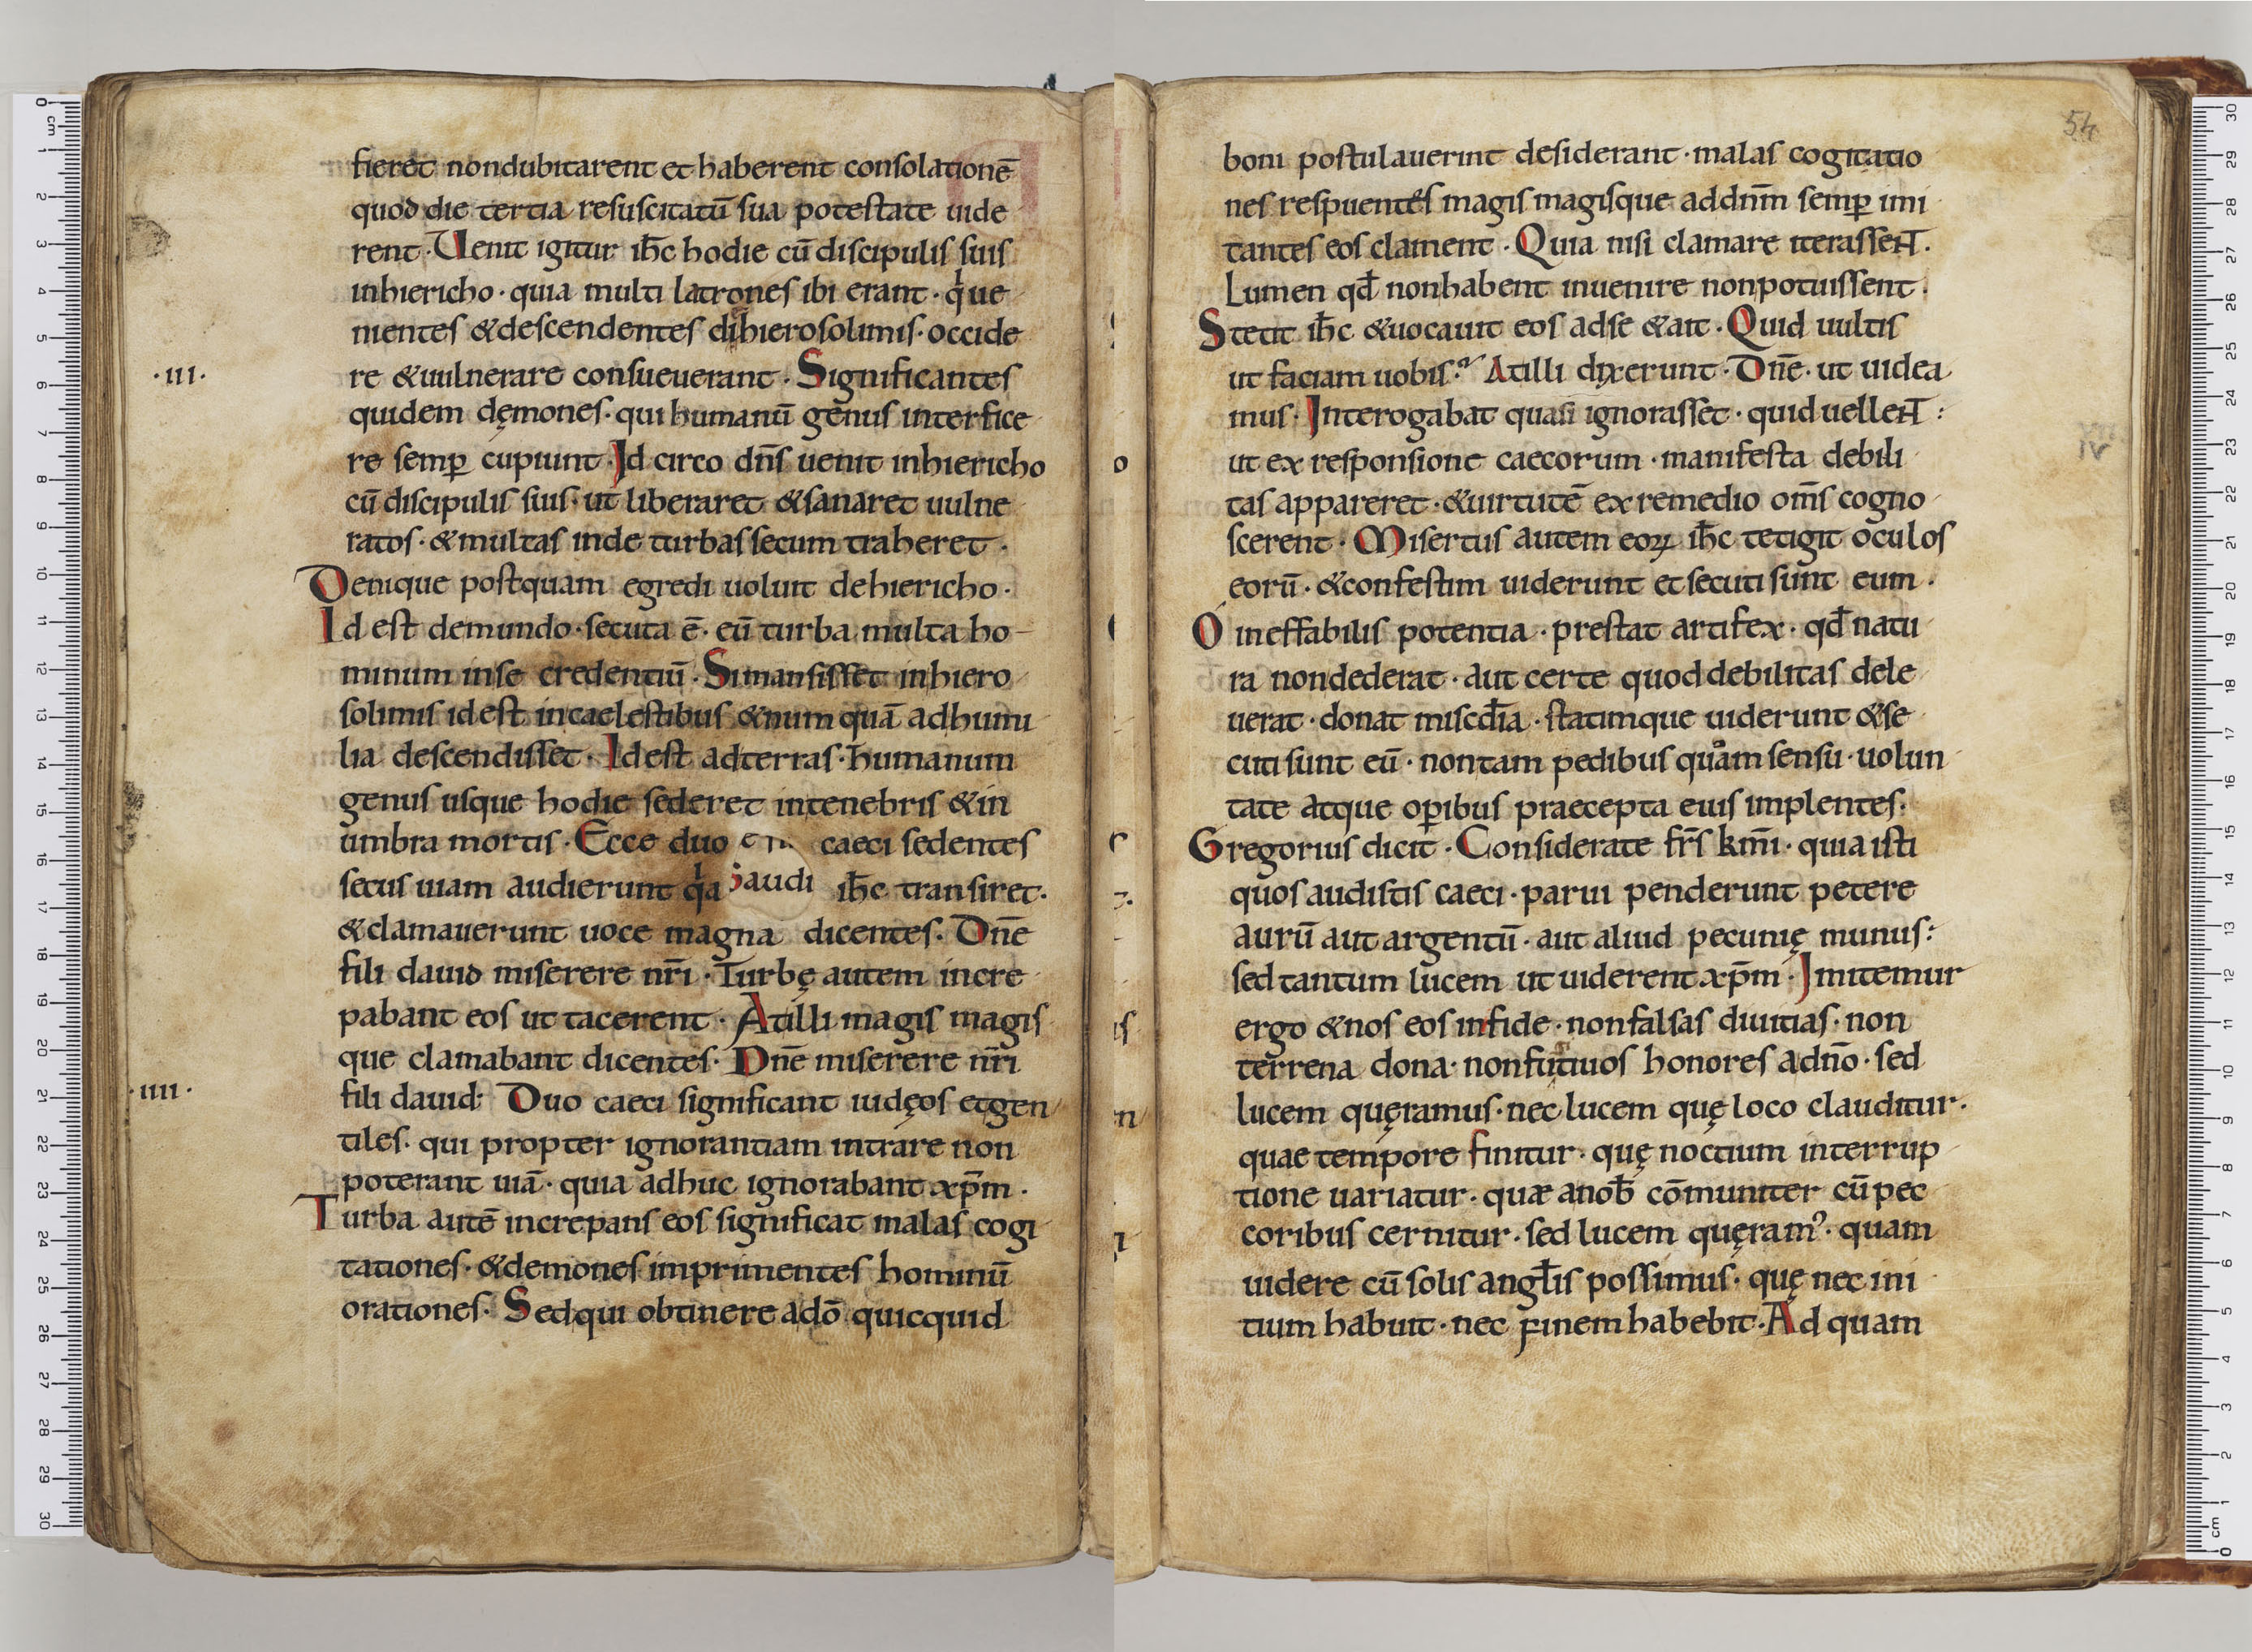 fieret nondubitarent et haberent consolationē
quod die tertia resuscitatū sua potestate uide
rent · Uenit igitur ih̅c hodie cū discipulis suis
inhiericho · quia multi latrones ibi erant · q̍ ue
nientes & descendentes dihierosolimis · occide
·III· re & uulnerare consueuerant · Significantes
quidem dęmones · qui humanū genus interfice
re semꝑ cupiunt · Id circo dn̄s uenit inhiericho
cū discipulis suis · ut liberaret & sanaret uulne
ratos · & multas inde turbas secum traheret ·
Denique postquam egredi uoluit dehiericho ·
Id est demundo · secuta ē · eū turba multa ho
minum inse credentiū · Simansisset inhiero
solimis idest incaelestibus & num quā adhumi
lia descendisset · Idest adterras · humanum
genus usque hodie sederet intenebris & in
umbra mortis · Ecce duo caeci sedentes
secus uiam audierunt q̍a audi ih̅c transiret ·
& clamauerunt uoce magna dicentes · Dn̄e
fili dauid miserere nr̄i · Turbę autem incre
pabant eos ut tacerent · Atilli magis magis
que clamabant dicentes · Dn̄e miserere nr̄i
·IIII· fili dauid · Duo caeci significant iudęos et gen
tiles · qui propter ignorantiam intrare non
poterant uiā · quia adhuc ignorabant xp̄m ·
Turba autē increpans eos significat malas cogi
tationes · & demones imprimentes hominū
orationes · Sedqui obtinere adō quicquid
54
boni postulauerint desiderant · malas cogitatio
nes respuentes magis magisque addn̄m semꝑ imi
tantes eos clament · Quia nisi clamare iterassent ·
Lumen qđ nonhabent inuenire nonpotuissent ·
Stetit ih̅c & uocauit eos adse & ait · Quid uultis
ut faciam uobis · Atilli dixerunt · Dn̄e · ut uidea
mus · Interogabat quasi ignorasset · quid uellent :
IV
ut ex responsione caecorum · manifesta debili
tas appareret · & uirtutē ex remedio om̄s cogno
scerent · Misertus autem eoꝝ ih̅c tetigit oculos
eorū · & confestim uiderunt et secuti sunt eum ·
O ineffabilis potentia · prestat artifex · qđ natu
ra nondederat · aut certe quod debilitas dele
uerat · donat miscd̄ia · statimque uiderunt & se
cuti sunt eū · nontam pedibus quam sensu · uolun
tate atque oꝑibus praecepta euis implentes ·
Gregorius dicit · Considerate fr̄s km̄i · quia isti
quos audistis caeci · parui penderunt petere
aurū aut argentū · aut aliud pecunię munus :
sed tantum lucem ut uiderent xp̄m · Imitemur
ergo & nos eos infide · nonfalsas diuitias · non
terrena dona · nonfutiuos honores adn̄o · sed
lucem quęramus · nec lucem quę loco clauditur ·
quae tempore finitur · quę noctium interrup
tione uariatur · quæ anob̄ cōmuniter cū pec
coribus cernitur · sed lucem quęramꝰ · quam
uidere cū solis angl̄is possimus · quę nec ini
tium habuit · nec finem habebit · Ad quam